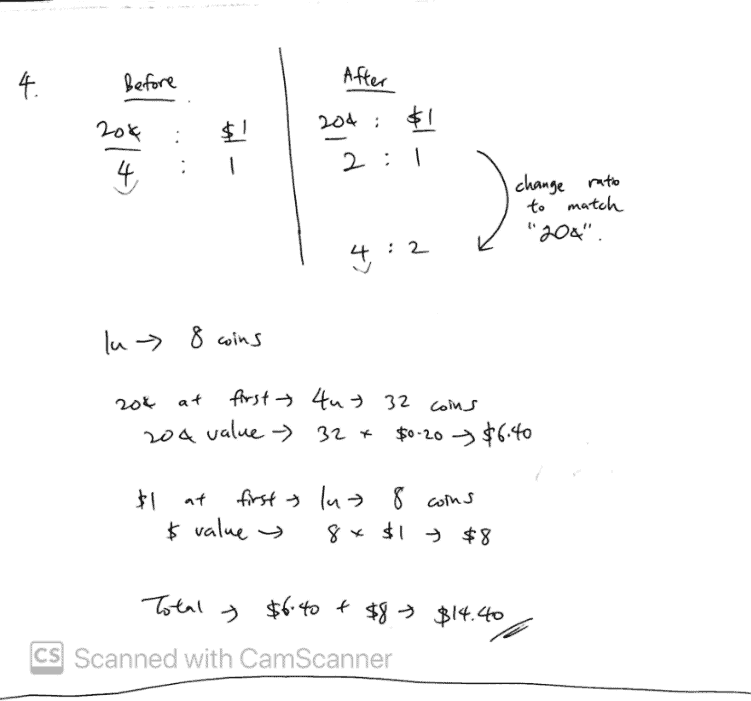 4.
Before
After
20¢ : $1
20¢ : $1
4 : 1
2 : 1
change ratio
to match
"20¢".
4 : 2
1u → 8 coins
20¢ at first → 4u → 32 coins
20¢ value → 32 × $0.20 → $6.40
$1 at first → 1u → 8 coins
$ value → 8 × $1 → $8
Total → $6.40 + $8 → $14.40
CS Scanned with CamScanner